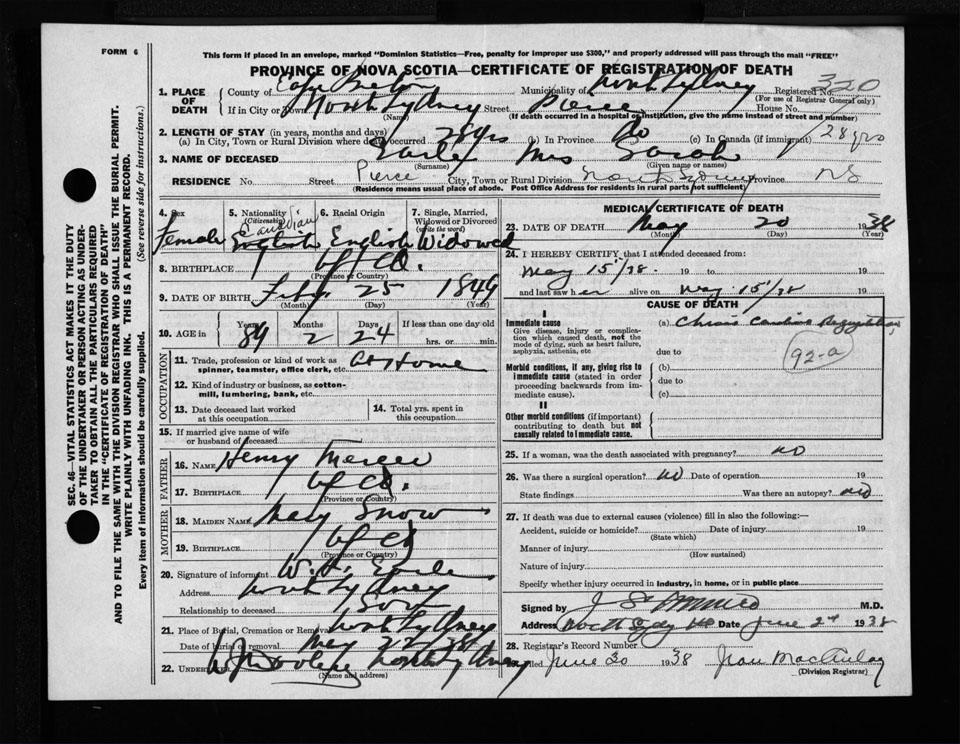 FORM 6
This form if placed in an envelope, marked "Dominion Statistics—Free, penalty for improper use $300," and properly addressed will pass through the mail "FREE"
PROVINCE OF NOVA SCOTIA—CERTIFICATE OF REGISTRATION OF DEATH
1. PLACE OF DEATH
County of Cape Breton Municipality of North Sydney Registered No. 320
(For use of Registrar General only)
If in City or Town North Sydney Street Pierce House No.
(Name) (If death occurred in a hospital or institution, give the name instead of street and number)
2. LENGTH OF STAY (in years, months and days)
(a) In City, Town or Rural Division where death occurred 28 yrs (b) In Province do (c) In Canada (if immigrant) 28 yrs
3. NAME OF DECEASED Earle Mrs Sarah
(Surname) (Given name or names)
RESIDENCE No. Street Pierce City, Town or Rural Division North Sydney Province NS
(Residence means usual place of abode. Post Office Address for residents in rural parts not sufficient)
4. Sex Female
5. Nationality (Citizenship) Canadian English
6. Racial Origin English
7. Single, Married, Widowed or Divorced (write the word) Widowed
8. BIRTHPLACE Nfld.
(Province or Country)
9. DATE OF BIRTH Feby 25 1849
(Month) (Day) (Year)
10. AGE in Years 89 Months 2 Days 24 If less than one day old hrs. or min.
OCCUPATION
11. Trade, profession or kind of work as spinner, teamster, office clerk, etc. At Home
12. Kind of industry or business, as cotton-mill, lumbering, bank, etc.
13. Date deceased last worked at this occupation
14. Total yrs. spent in this occupation
15. If married give name of wife or husband of deceased
FATHER
16. NAME Henry Mercer
17. BIRTHPLACE Nfld.
(Province or Country)
MOTHER
18. MAIDEN NAME Mary Snow
19. BIRTHPLACE Nfld
(Province or Country)
20. Signature of informant W. H. Earle
Address North Sydney
Relationship to deceased Son
21. Place of Burial, Cremation or Removal North Sydney
Date of burial or removal May 22/38
22. Undertaker North Sydney
(Name and address)
MEDICAL CERTIFICATE OF DEATH
23. DATE OF DEATH May 20 1938
(Month) (Day) (Year)
24. I HEREBY CERTIFY that I attended deceased from:
May 15/38. 19 to 19
and last saw her alive on May 15/38 19
CAUSE OF DEATH
I
Immediate cause
Give disease, injury or complication which caused death, not the mode of dying, such as heart failure, asphyxia, asthenia, etc
(a) Chronic Cardiac Regurgitation
92-a
due to
Morbid conditions, if any, giving rise to immediate cause (stated in order proceeding backwards from immediate cause).
(b)
due to
(c)
II
Other morbid conditions (if important) contributing to death but not causally related to immediate cause.
25. If a woman, was the death associated with pregnancy? no
26. Was there a surgical operation? no Date of operation 19
State findings Was there an autopsy? no
27. If death was due to external causes (violence) fill in also the following:—
Accident, suicide or homicide? Date of injury 19
(State which)
Manner of injury
(How sustained)
Nature of injury
Specify whether injury occurred in industry, in home, or in public place
Signed by M.D.
Address North Sydney Date June 2nd 1938
28. Registrar's Record Number
Filed June 20 1938 Jean MacAulay
(Division Registrar)
SEC. 46—VITAL STATISTICS ACT MAKES IT THE DUTY OF THE UNDERTAKER OR PERSON ACTING AS UNDERTAKER TO OBTAIN ALL THE PARTICULARS REQUIRED IN THE "CERTIFICATE OF REGISTRATION OF DEATH" AND TO FILE THE SAME WITH THE DIVISION REGISTRAR WHO SHALL ISSUE THE BURIAL PERMIT.
WRITE PLAINLY WITH UNFADING INK. THIS IS A PERMANENT RECORD.
Every item of information should be carefully supplied. (See reverse side for instructions.)